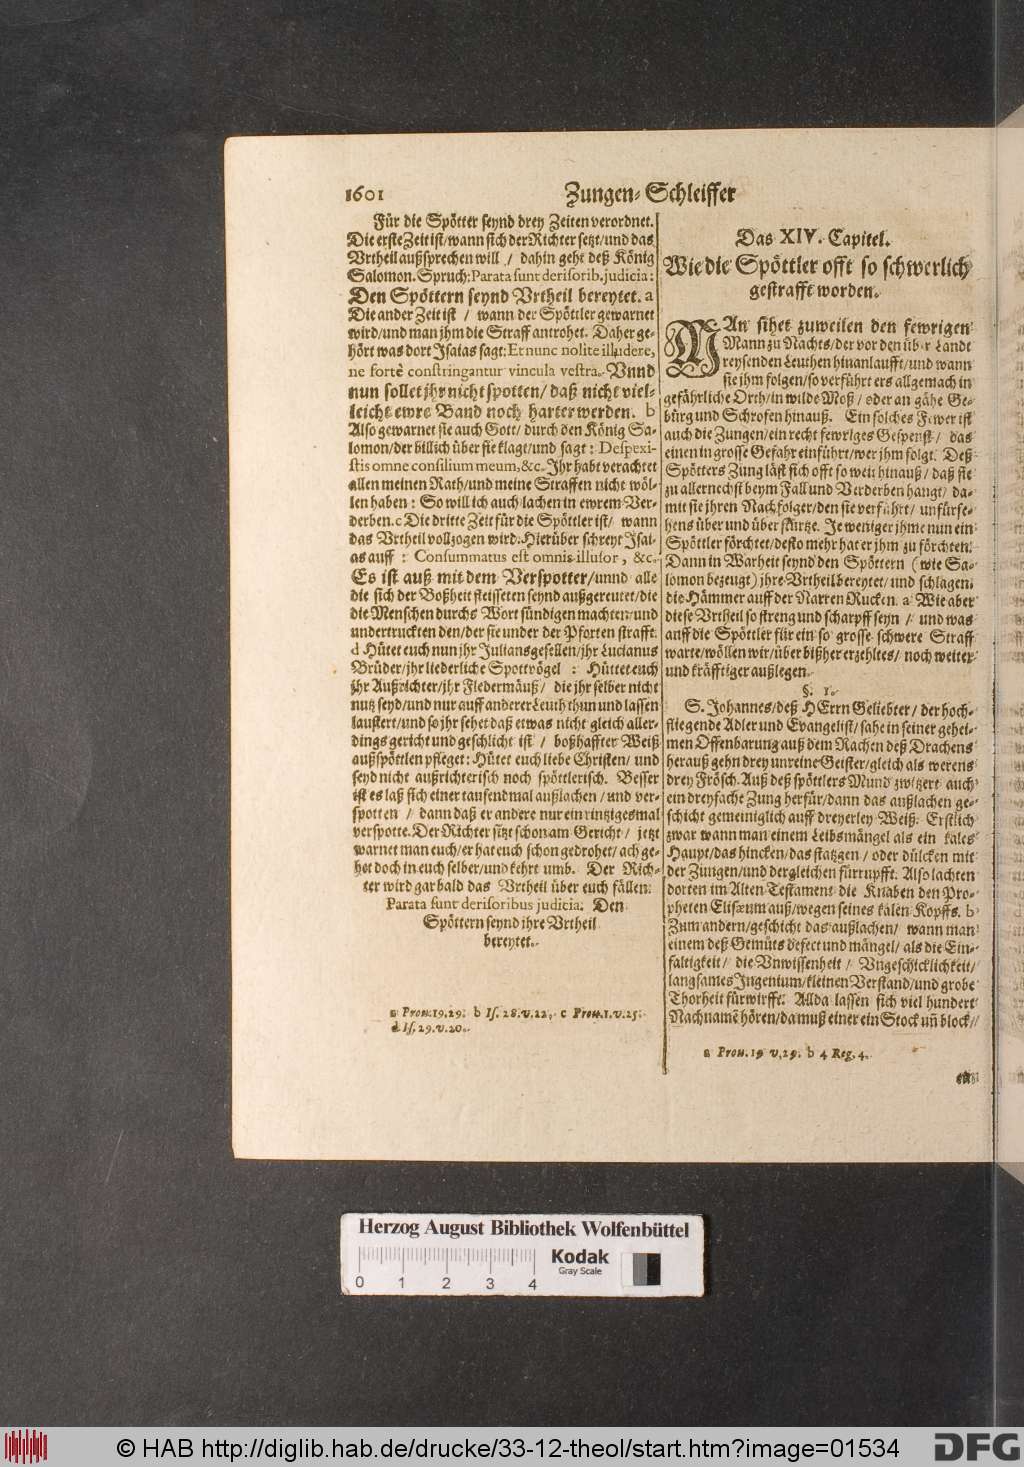 1601
Zungen-Schleiffer
Für die Spötter seynd drey Zeiten verordnet.
Die erste Zeit ist/ wann sich der Richter setzt/ und das
Vrtheil außsprechen will / dahin geht deß König
Salomon. Spruch: Parata sunt derisorib. judicia:
Den Spöttern seynd Vrtheil bereytet. a
Die ander Zeit ist / wann der Spöttler gewarnet
wird/ und man jhm die Straff antrohet. Daher ge-
hört was dort Isaias sagt: Et nunc nolite illudere,
ne fortè constringantur vincula vestra. Vnnd
nun sollet jhr nicht spotten/ daß nicht viel-
leicht ewre Band noch harter werden. b
Also gewarnet sie auch Gott/ durch den König Sa-
lomon/ der billich über sie klagt/ und sagt: Despexi-
stis omne consilium meum, &c. Jhr habt verachtet
allen meinen Rath/ und meine Straffen nicht wöl-
len haben: So will ich auch lachen in ewrem Ver-
derben. c Die dritte Zeit für die Spöttler ist/ wann
das Vrtheil vollzogen wird. Hierüber schreyt Isai-
as auff : Consummatus est omnis illusor, &c.
Es ist auß mit dem Verspotter/ unnd alle
die sich der Boßheit fleisseten seynd außgereutet/ die
die Menschen durchs Wort sündigen machten/ und
undertruckten den/ der sie under der Pforten strafft.
d Hütet euch nun jhr Juliansgesellen/ jhr Lucianus
Brüder/ jhr liederliche Spottvögel : Hüttet euch
jhr Außrichter/ jhr Fledermäuß/ die jhr selber nicht
nutz seyd/ und nur auff anderer Leuth thun und lassen
laustert/ und so jhr sehet daß etwas nicht gleich aller-
dings gericht und geschlicht ist / boßhaffter Weiß
außspöttlen pfleget: Hütet euch liebe Christen/ und
seyd nicht außrichterisch noch spöttlerisch. Besser
ist es laß sich einer tausend mal außlachen/ und ver-
spotten / dann daß er andere nur ein eintziges mal
verspotte. Der Richter sitzt schon am Gericht / jetzt
warnet man euch/ er hat euch schon gedrohet/ ach ge-
het doch in euch selber/ und kehrt umb. Der Rich-
ter wird gar bald das Vrtheil über euch fällen:
Parata sunt derisoribus judicia. Den
Spöttern seynd ihre Vrtheil
bereytet.
a Prou. 19.29. b Is. 28.v.22. c Prou. 1.v.25.
d Is. 29.v.20.
Das XIV. Capitel.
Wie die Spöttler offt so schwerlich
gestrafft worden.
MAn sihet zuweilen den fewrigen
Mann zu Nachts/ der vor den über Landt
reysenden Leuthen hinanlaufft/ und wann
sie jhm folgen/ so verführt ers allgemach in
gefährliche Orth/ in wilde Moß/ oder an gähe Ge-
bürg und Schrofen hinauß. Ein solches Fewer ist
auch die Zungen/ ein recht fewriges Gespenst/ das
einen in grosse Gefahr einführt/ wer jhm folgt. Deß
Spötters Zung läst sich offt so weit hinauß/ daß sie
zu allernechst beym Fall und Verderben hangt/ da-
mit sie jhren Nachfolger/ den sie verführt/ unfürse-
hens über und über stürtze. Je weniger jhme nun ein
Spöttler förchtet/ desto mehr hat er jhm zu förchten.
Dann in Warheit seynd den Spöttern (wie Sa-
lomon bezeugt) jhre Vrtheil bereytet/ und schlagen.
die Hämmer auff der Narren Rucken. a Wie aber
diese Vrtheil so streng und scharpff seyn / und was
auff die Spöttler für ein so grosse schwere Straff
warte/ wöllen wir/ über bißher erzehltes/ noch weiter
und kräfftiger außlegen.
§. 1.
S. Johannes/ deß HErrn Geliebter / der hoch-
fliegende Adler und Evangelist/ sahe in seiner gehei-
men Offenbarung auß dem Rachen deß Drachens
herauß gehn drey unreine Geister/ gleich als werens
drey Frösch. Auß deß spöttlers Mund zwitzert auch
ein dreyfache Zung herfür/ dann das außlachen ge-
schicht gemeiniglich auff dreyerley Weiß: Erstlich
zwar wann man einem Leibsmängel als ein kales
Haupt/ das hincken/ das statzgen / oder dülcken mit
der Zungen/ und dergleichen fürrupfft. Also lachten
dorten im Alten Testament die Knaben den Pro-
pheten Elisæum auß/ wegen seines kalen Kopffs. b
Zum andern/ geschicht das außlachen/ wann man
einem deß Gemüts defect und mängel/ als die Ein-
faltigkeit / die Vnwissenheit / Vngeschicklichkeit/
langsames Ingenium/ kleinen Verstand/ und grobe
Thorheit fürwirfft. Allda lassen sich viel hundert
Nachnamē hören/ da muß einer ein Stock uñ block/
a Prou. 19 v.29. b 4 Reg. 4.
Herzog August Bibliothek Wolfenbüttel
Kodak
Gray Scale
0 1 2 3 4
© HAB http://diglib.hab.de/drucke/33-12-theol/start.htm?image=01534
DFG